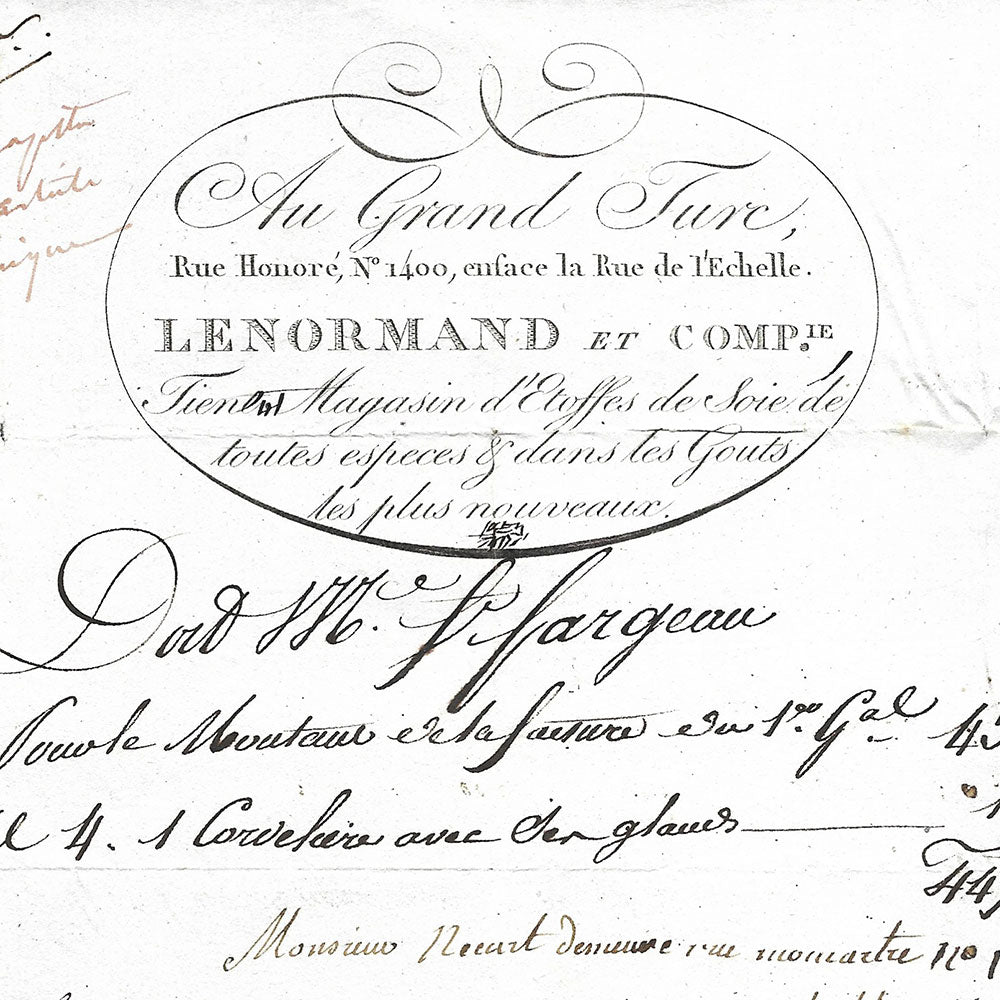 Au Grand Turc,
Rue Honoré, N° 1400, enface la Rue de l'Echelle.
LENORMAND ET COMP.IE
Tienent Magasin d'Etoffes de Soie de
toutes especes & dans les Gouts
les plus nouveaux.
Doit M.e St fargeau
Pour le Montant de la facture du 1.er G.al 43
4. 1 Cordeliere avec Ses glands 1
44
Monsieur demeure rue momartre No